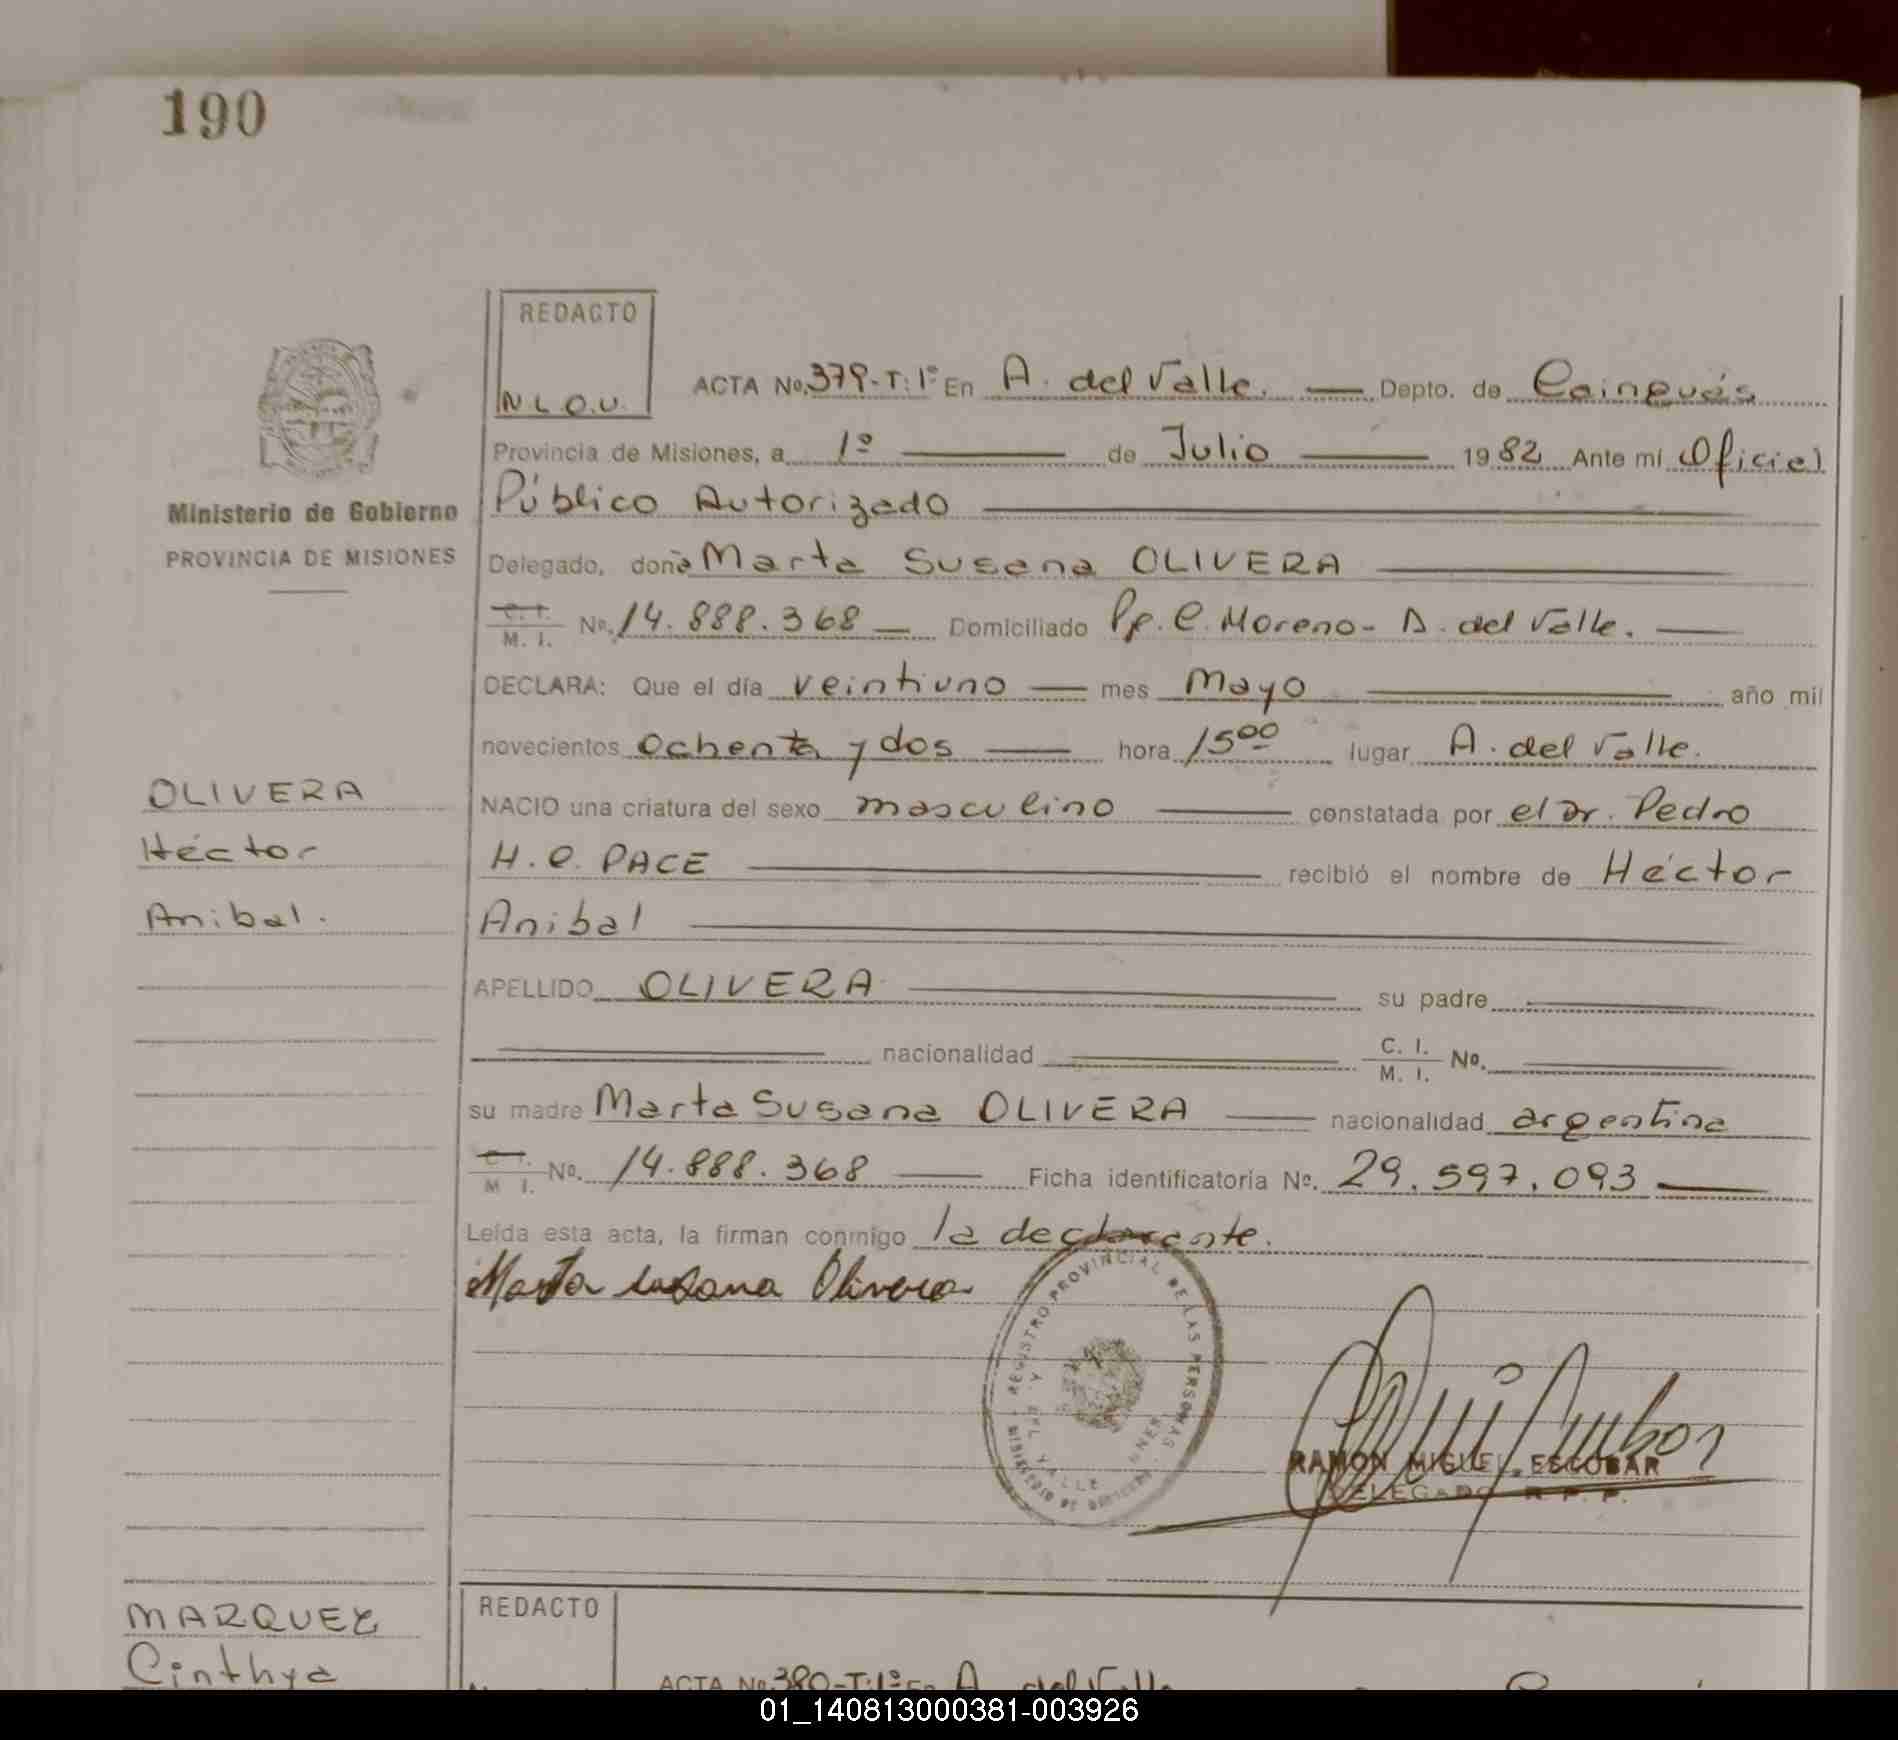 190
REDACTO
N.L.O.U.
ACTA No. 379-T:1º En A. del Valle. Depto. de Cainguás
Provincia de Misiones, a 1º de Julio 1982 Ante mí Oficial
Público Autorizado
Ministerio de Gobierno
PROVINCIA DE MISIONES
Delegado, doña Marta Susana OLIVERA
C. I.
M. I. No. 14.888.368 Domiciliado Pje. C. Moreno - A. del Valle.
DECLARA: Que el día veintiuno mes Mayo año mil
novecientos ochenta y dos hora 15ºº lugar A. del Valle.
OLIVERA
Héctor
Anibal.
NACIO una criatura del sexo masculino constatada por el Dr. Pedro
H. C. PACE recibió el nombre de Héctor
Anibal
APELLIDO OLIVERA su padre
nacionalidad C. I.
M. I. No.
su madre Marta Susana OLIVERA nacionalidad argentina
C. I.
M. I. No. 14.888.368 Ficha identificatoria No. 29.597.093
Leída esta acta, la firman conmigo la declarante.
Marta Susana Olivera
REGISTRO PROVINCIAL DE LAS PERSONAS
DEL VALLE
RAMON MIGUEL ESCOBAR
DELEGADO R. P. P.
MARQUEZ
Cinthya
REDACTO
ACTA No. 380-T:1º En A. del Valle
01_140813000381-003926